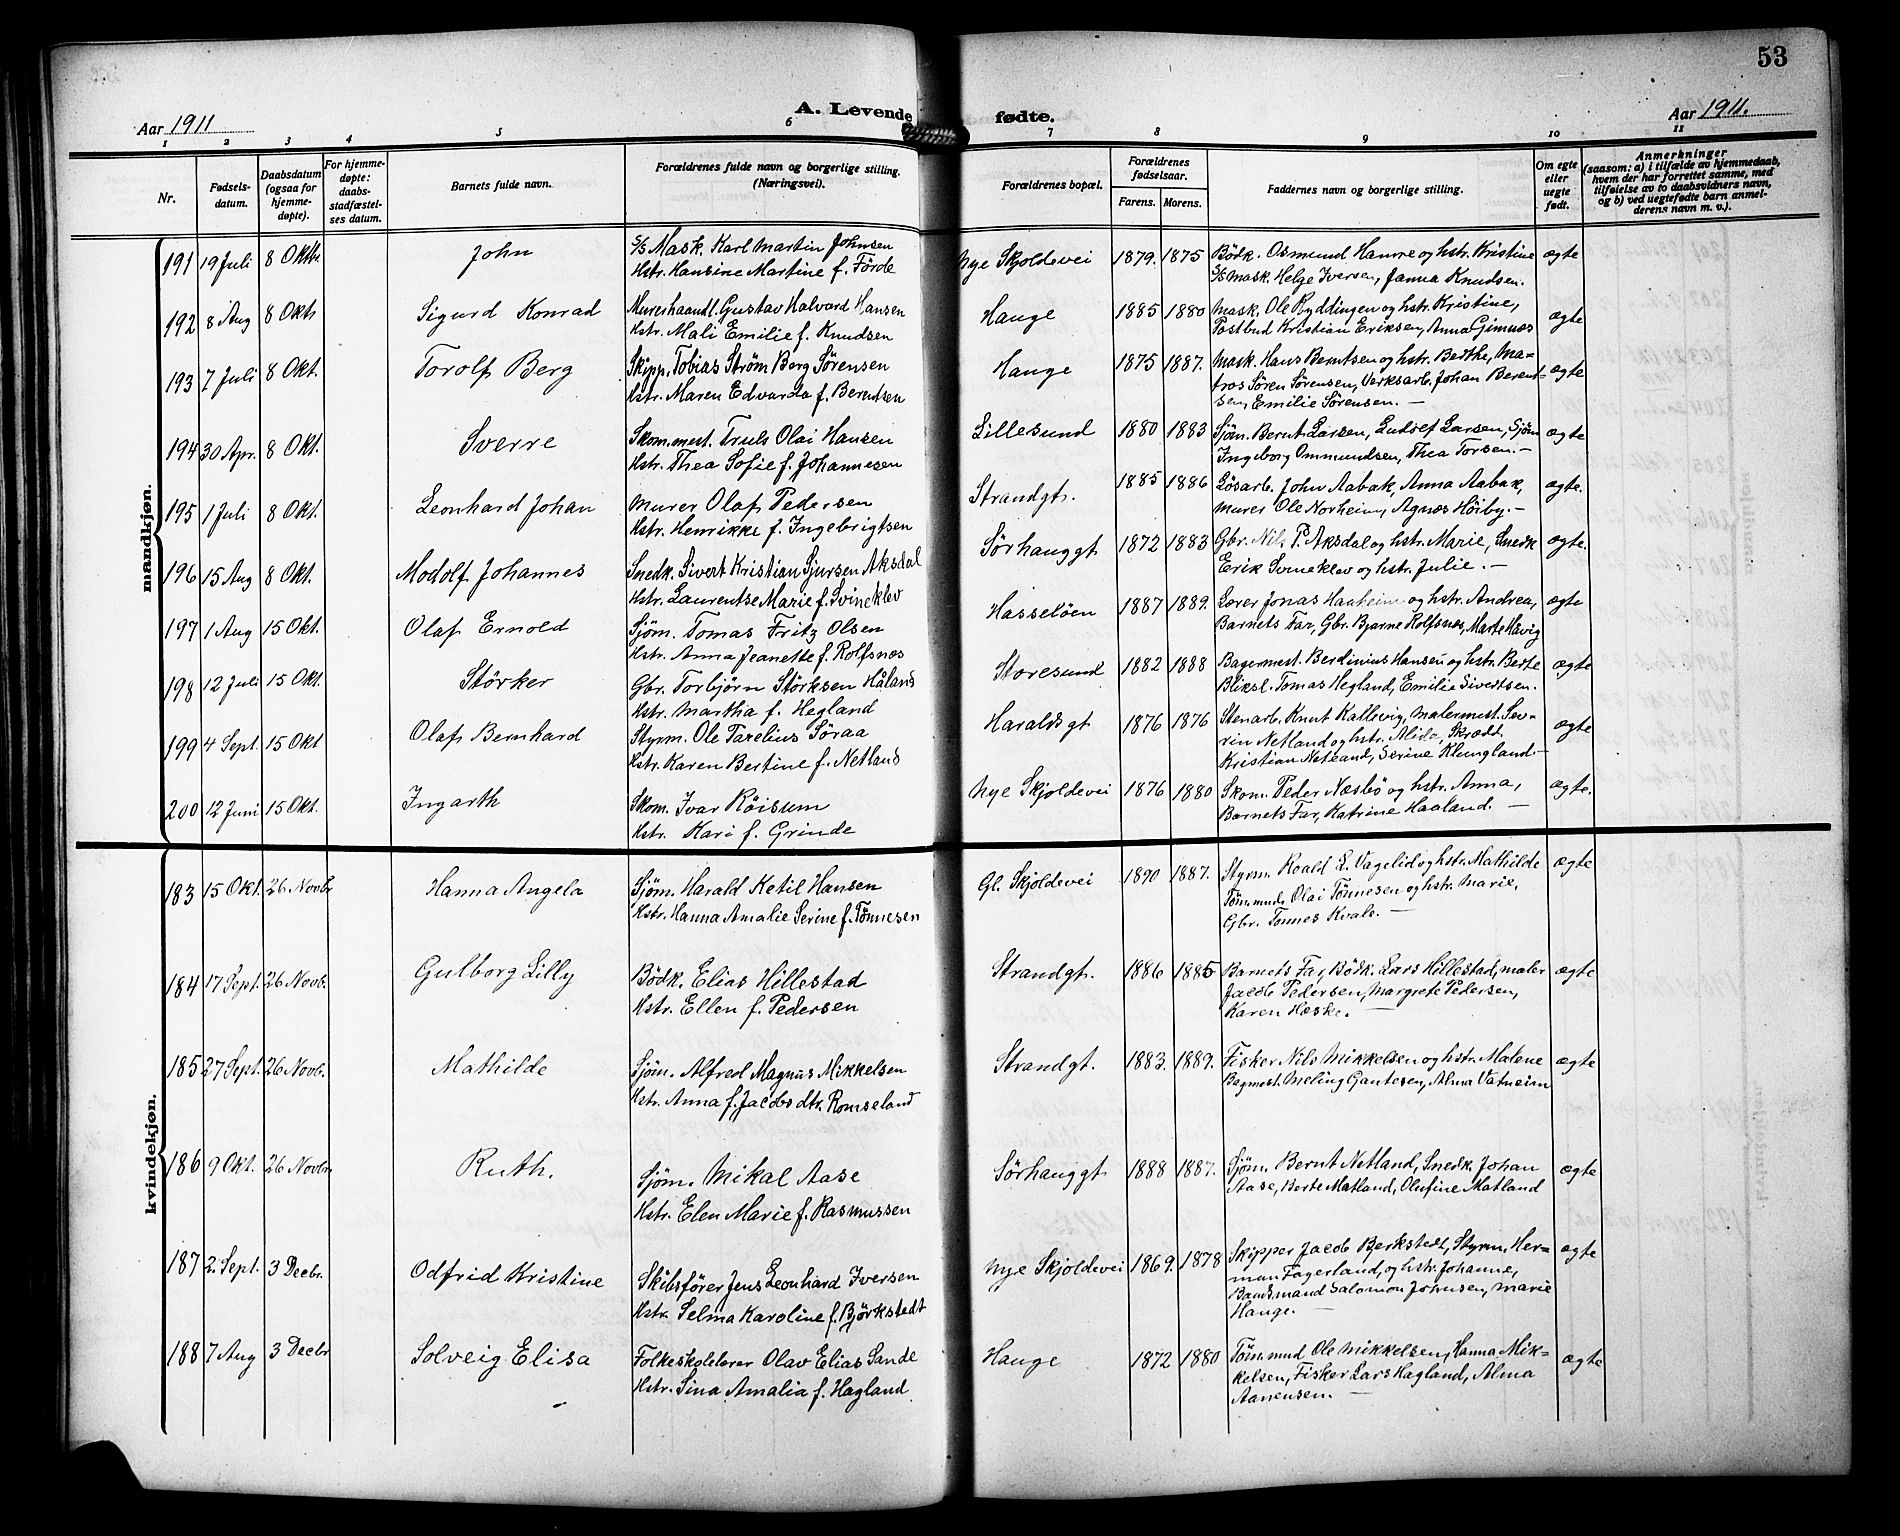 53
A. Levende fødte.
Aar 1911
Aar 1911.
1 2 3 4 5 6 7 8 9 10 11
Nr.
Fødsels-
datum.
Daabsdatum
(ogsaa for
hjemme-
døpte).
For hjemme-
døpte:
daabs-
stadfæstel-
ses datum.
Barnets fulde navn.
Forældrenes fulde navn og borgerlige stilling.
(Næringsvei).
Forældrenes bopæl.
Forældrenes
fødselsaar.
Farens. Morens.
Faddernes navn og borgerlige stilling.
Om egte
eller
uegte
født.
Anmerkninger
(saasom: a) i tilfælde av hjemmedaab,
hvem der har forrettet samme, med
tilføielse av to daabsvidners navn,
og b) ved uegtefødte barn anmel-
derens navn m. v.).
mandkjøn.
191 19 Juli 8 Oktr. John
S/S Mask. Karl Martin Johnsen
Hstr. Hansine Martine f. Förde
Nye Skjoldevei 1879. 1875
Bödk. Osmund Hamre og hstr. Kristine
S/S mask. Helge Iversen, Janna Knudsen.
ægte
192 8 Aug 8 Oktr Sigurd Konrad
Murerhaandl. Gustav Halvard Hansen
Hstr. Mali Emilie f. Knudsen
Hauge 1885 1880
Mask. Ole Ryddingen og hstr. Kristine,
Postbud Kristian Eriksen, Anna Gimnæs
ægte
193 7 Juli 8 Okt. Torolf Berg
Skipp. Tobias Ström Berg Sörensen
Hstr. Maren Edvarda f. Berentsen
Hauge 1875 1887.
Mask. Hans Berntsen og hstr. Berthe, Ma-
tros Sören Sörensen, Verksarb. Johan Berent-
sen, Emilie Sörensen. —
ægte
194 30 Apr. 8 Okt. Sverre
Skom.mest. Truls Olai Hansen
Hstr. Thea Sofie f. Johannesen
Lillesund 1880 1883
Sjöm. Bernt Larsen, Ludolf Larsen, Sjöm
Ingeborg Ommundsen, Thea Torsen. —
ægte
195 1 Juli 8 Okt. Leonhard Johan
Murer Olaf Pedersen
Hstr. Henrikke f. Ingebrigtsen
Strandgt. 1885 1886
Lösarb. John Aabak, Anna Aabak,
murer Ole Norheim, Agnes Höiby. —
ægte.
196 15 Aug 8 Okt. Modolf Johannes
Snedk. Sivert Kristian Sjursen Aksdal
Hstr. Laurentse Marie f. Svineklev
Sörhauggt 1872 1883
Gbr. Nils P. Aksdal og hstr. Marie, Snedk
Erik Svineklev og hstr. Julie. —
ægte.
197 1 Aug 15 Okt. Olaf Ernold
Sjöm. Tomas Fritz Olsen
Hstr. Anna Jeanette f. Rolfsnæs
Hasselöen 1887 1889.
Lærer Jonas Haaheim og hstr. Andrea,
Barnets Far, Gbr. Bjarne Rolfsnæs, Marte Hævig
ægte
198 12 Juli 15 Okt. Störker
Gbr. Torbjörn Störksen Håland
Hstr. Martha f. Hegland
Storesund 1882 1888
Bagermest. Berdinius Hansen og hstr. Berte
Bliksl. Tomas Hegland, Emilie Sivertsen.
ægte
199 4 Sept. 15 Okt Olaf Bernhard
Styrm. Ole Tarelius Söraa
Hstr. Karen Bertine f. Netland
Haraldsgt 1876 1876
Stenarb. Knut Kallevig, malermest. Sev-
rin Netland og hstr. Alida, Skrædt.
Kristian Netland, Serine Kleungland. —
ægte
200 12 Juni 15 Okt. Ingarth
Skom. Ivar Röisum
Hstr. Kari f. Grinde
Nye Skjoldevei 1876 1880
Skom. Peder Næsbö og hstr. Anna,
Barnets Far, Katrine Haaland. —
ægte.
kvindekjøn.
183 15 Okt. 26 Novbr Hanna Angela
Sjöm. Harald Ketil Hansen
Hstr. Hanna Amalie Serine f. Tönnesen
Gl. Skjoldevei 1890 1887.
Styrm. Roald L. Vagelid og hstr. Mathilde
Tömmerm. Olai Tönnesen og hstr. Marie,
Gbr. Tönnes Kvale. —
ægte
184 17 Sept. 26 Novb. Gulborg Lilly
Bödk. Elias Hillestad
Hstr. Ellen f. Pedersen
Strandgt. 1886 1885
Barnets Far, Bödk. Lars Hillestad, maler
Jacob Pedersen, Margrete Pedersen,
Karen Hæske. —
ægte
185 27 Sept. 26 Novb. Mathilde
Sjöm. Alfred Magnus Mikkelsen
Hstr. Anna f. Jacobsdtr. Romseland
Strandgt. 1883. 1889.
Fisker Nils Mikkelsen og hstr. Malene
Bagmest. Meling Gautesen, Alma Vatneim
ægte
186 9 Okt. 26 Novbr Ruth.
Sjöm. Mikal Aase
Hstr. Elen Marie f. Rasmussen
Sörhauggt 1888 1887.
Sjöm. Bernt Netland, Snedk. Johan
Aase, Berte Matland, Olufine Matland
ægte
187 2. Sept. 3 Decbr. Odfrid Kristine
Skibsförer Jens Leonhard Iversen
Hstr. Selma Karoline f. Björkstedt
Nye Skjoldevei 1869. 1878
Skipper Jacob Berkstedt, Styrm. Her-
man Fagerland, og hstr. Johanne,
Baadsmand Salomon Johnsen, Marie
Hauge. —
ægte
188 7 Aug 3 Decbr Solveig Elisa
Folkeskolelærer Olav Elias Sande
Hstr. Sina Amalia f. Hagland
Hauge 1872 1880
Töm.mnd Ole Mikkelsen, Hanna Mik-
kelsen, Fisker Lars Hagland, Alma
Aanensen. —
ægte